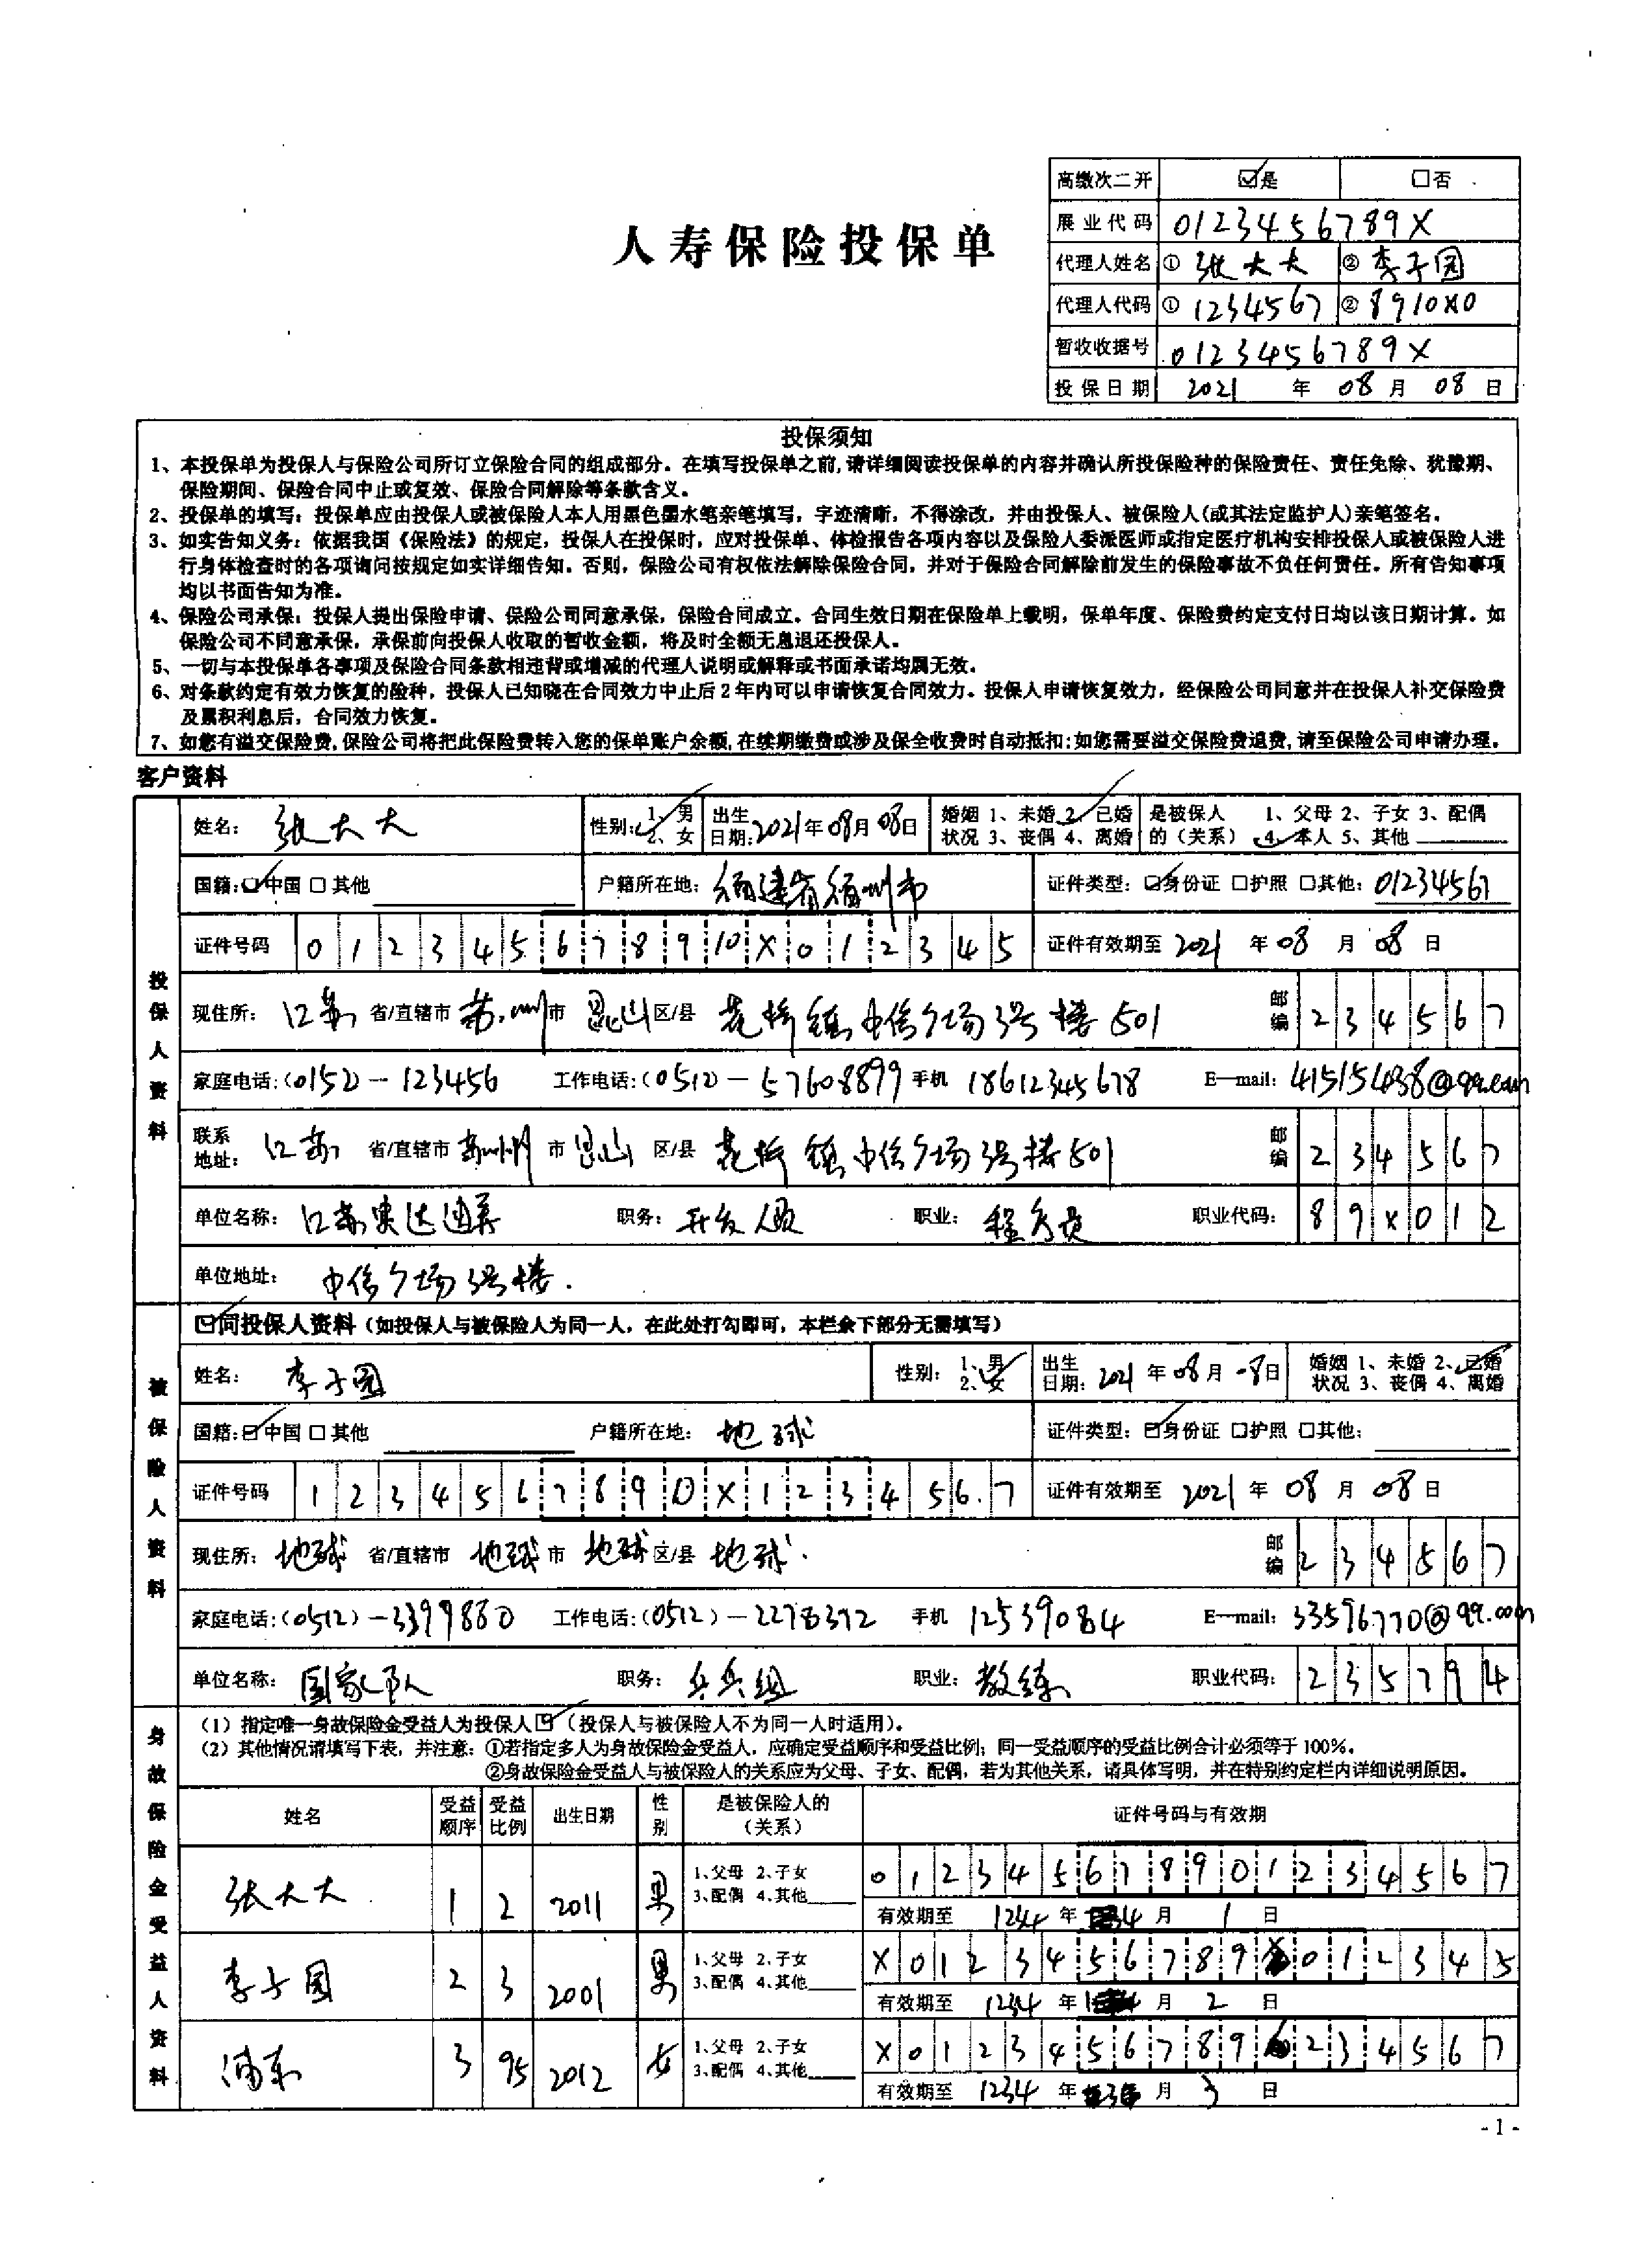 高缴次二开 ☑是 □否
人寿保险投保单
展业代码 0123456789X
代理人姓名 ① 张大大 ② 李子园
代理人代码 ① 1234567 ② 8910X0
暂收收据号 0123456789X
投保日期 2021 年 08 月 08 日
投保须知
1、本投保单为投保人与保险公司所订立保险合同的组成部分。在填写投保单之前,请详细阅读投保单的内容并确认所投保险种的保险责任、责任免除、犹豫期、
保险期间、保险合同中止或复效、保险合同解除等条款含义。
2、投保单的填写:投保单应由投保人或被保险人本人用黑色墨水笔亲笔填写,字迹清晰,不得涂改,并由投保人、被保险人(或其法定监护人)亲笔签名。
3、如实告知义务:依据我国《保险法》的规定,投保人在投保时,应对投保单、体检报告各项内容以及保险人委派医师或指定医疗机构安排投保人或被保险人进
行身体检查时的各项询问按规定如实详细告知。否则,保险公司有权依法解除保险合同,并对于保险合同解除前发生的保险事故不负任何责任。所有告知事项
均以书面告知为准。
4、保险公司承保:投保人提出保险申请、保险公司同意承保,保险合同成立。合同生效日期在保险单上载明,保单年度、保险费约定支付日均以该日期计算。如
保险公司不同意承保,承保前向投保人收取的暂收金额,将及时全额无息退还投保人。
5、一切与本投保单各事项及保险合同条款相违背或增减的代理人说明或解释或书面承诺均属无效。
6、对条款约定有效力恢复的险种,投保人已知晓在合同效力中止后2年内可以申请恢复合同效力。投保人申请恢复效力,经保险公司同意并在投保人补交保险费
及累积利息后,合同效力恢复。
7、如您有溢交保险费,保险公司将把此保险费转入您的保单账户余额,在续期缴费或涉及保全收费时自动抵扣;如您需要溢交保险费退费,请至保险公司申请办理。
客户资料
投保人资料
姓名: 张大大 性别: 1、男 2、女 出生日期: 2021 年 08 月 08 日 婚姻状况 1、未婚 2、已婚 3、丧偶 4、离婚 是被保人的(关系) 1、父母 2、子女 3、配偶 4、本人 5、其他
国籍: ☑中国 □其他 户籍所在地: 福建省福州市 证件类型: ☑身份证 □护照 □其他: 01234567
证件号码 0 1 2 3 4 5 6 7 8 9 10 X 0 1 2 3 4 5 证件有效期至 2021 年 08 月 08 日
现住所: 江苏 省/直辖市 苏州 市 昆山 区/县 花桥镇中信广场3号楼501 邮编 2 3 4 5 6 7
家庭电话:(0152)-123456 工作电话:(0512)-57608899 手机 18612345678 E-mail: 415154038@qq.com
联系地址: 江苏 省/直辖市 苏州 市 昆山 区/县 花桥镇中信广场3号楼501 邮编 2 3 4 5 6 7
单位名称: 职务: 开发人员 职业: 程序员 职业代码: 8 9 X 0 1 2
单位地址: 中信广场3号楼.
被保险人资料
☑同投保人资料(如投保人与被保险人为同一人,在此处打勾即可,本栏余下部分无需填写)
姓名: 李子园 性别: 1、男 2、女 出生日期: 2021 年 08 月 08 日 婚姻状况 1、未婚 2、已婚 3、丧偶 4、离婚
国籍: ☑中国 □其他 户籍所在地: 地球 证件类型: ☑身份证 □护照 □其他:
证件号码 1 2 3 4 5 6 7 8 9 10 X 1 2 3 4 5 6 7 证件有效期至 2021 年 08 月 08 日
现住所: 地球 省/直辖市 地球 市 地球 区/县 地球. 邮编 2 3 4 5 6 7
家庭电话:(0512)-3399880 工作电话:(0512)-2278372 手机 12539084 E-mail: 33596770@qq.com
单位名称: 国家队 职务: 乒乓组 职业: 教练 职业代码: 2 3 5 7 9 4
身故保险金受益人资料
(1)指定唯一身故保险金受益人为投保人☑(投保人与被保险人不为同一人时适用)。
(2)其他情况请填写下表,并注意:①若指定多人为身故保险金受益人,应确定受益顺序和受益比例;同一受益顺序的受益比例合计必须等于100%。
②身故保险金受益人与被保险人的关系应为父母、子女、配偶,若为其他关系,请具体写明,并在特别约定栏内详细说明原因。
姓名 受益顺序 受益比例 出生日期 性别 是被保险人的(关系) 证件号码与有效期
张大大 1 2 2011 男 1、父母 2、子女 3、配偶 4、其他 0 1 2 3 4 5 6 7 8 9 0 1 2 3 4 5 6 7
有效期至 1244 年 4 月 1 日
李子园 2 3 2001 男 1、父母 2、子女 3、配偶 4、其他 X 0 1 2 3 4 5 6 7 8 9 X 0 1 2 3 4 5
有效期至 1234 年 月 2 日
浦东 3 95 2012 女 1、父母 2、子女 3、配偶 4、其他 X 0 1 2 3 4 5 6 7 8 9 2 3 4 5 6 7
有效期至 1234 年 月 3 日
- 1 -